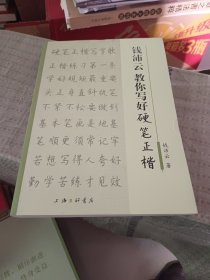 钱沛云教你写好硬笔正楷
钱沛云 著
硬笔正楷写歌
正楷练习第一条
学好规矩最重要
头正身直
不紧不松
基本笔画是地基
笔顺更须常记牢
若想写得人夸好
勤学苦练才见效
上海三联书店
3版